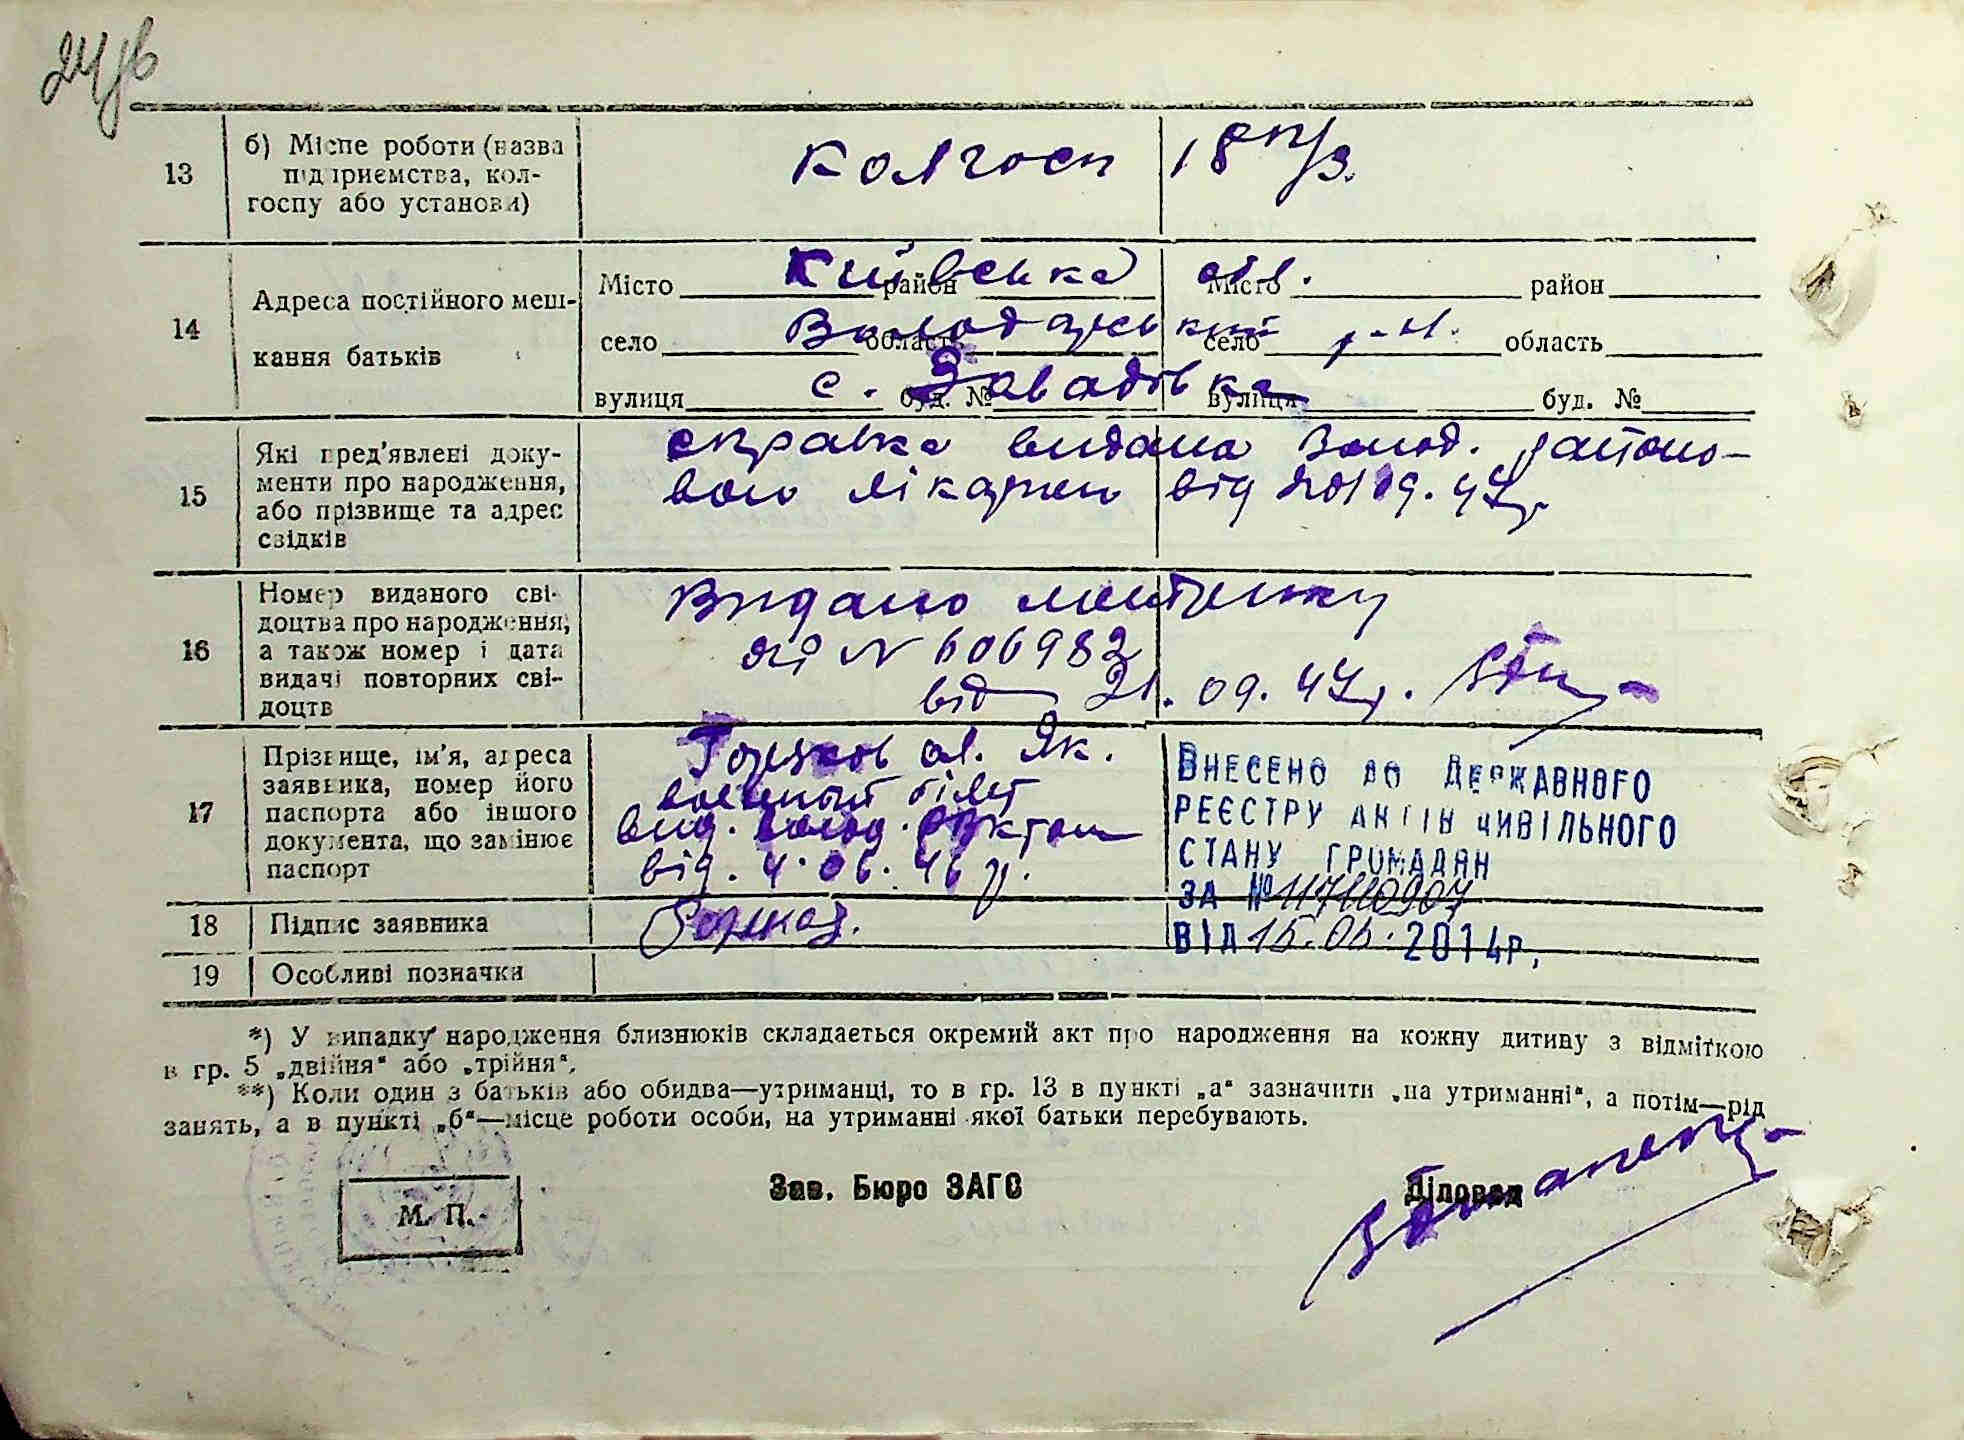 13 б) Місце роботи (назва
підприємства, кол-
госпу або установи)
колгосп 18 п/з.
14 Адреса постійного меш-
кання батьків
Місто район Місто район
село область село область
вулиця буд. № вулиця буд. №
Київська обл.
Володарський р-н.
с. Завадівка
15 Які пред'явлені доку-
менти про народження,
або прізвище та адрес
свідків
справка видана Волод. районо-
вою лікарнею від 09. 47р.
16 Номер виданого сві-
доцтва про народження,
а також номер і дата
видачі повторних сві-
доцтв
Видано метрику
№ 606982
від 21. 09. 47р.
17 Прізвище, ім'я, адреса
заявника, номер його
паспорта або іншого
документа, що замінює
паспорт
Як.
білет
вид. Волод.
від. 4. 06. 46 р.
ВНЕСЕНО ДО ДЕРЖАВНОГО
РЕЄСТРУ АКТІВ ЦИВІЛЬНОГО
СТАНУ ГРОМАДЯН
ЗА №
ВІД 2014р.
18 Підпис заявника
19 Особливі позначки
*) У випадку народження близнюків складається окремий акт про народження на кожну дитину з відміткою
в гр. 5 „двійня“ або „трійня“.
**) Коли один з батьків або обидва—утриманці, то в гр. 13 в пункті „а“ зазначити „на утриманні“, а потім—рід
занять, а в пункті „б“—місце роботи особи, на утриманні якої батьки перебувають.
М. П.
Зав. Бюро ЗАГС
Діловод